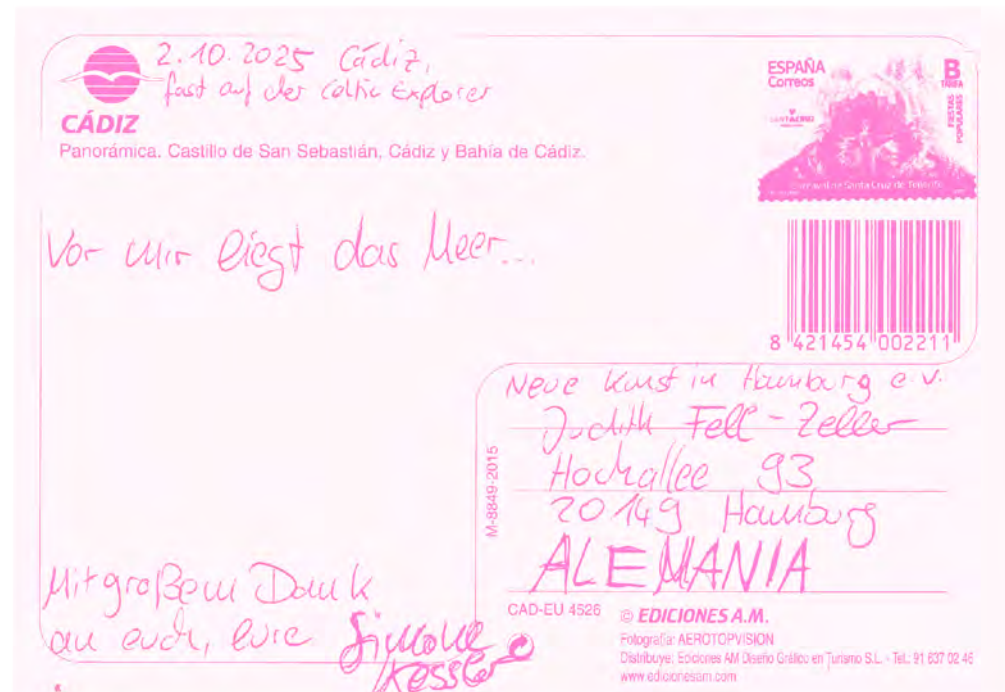 2.10.2025 Cádiz,
fast auf der Celtic Explorer
CÁDIZ
Panorámica. Castillo de San Sebastián, Cádiz y Bahía de Cádiz.
ESPAÑA
Correos
B
TARIFA
FIESTAS
POPULARES
Carnaval de Santa Cruz de Tenerife
Vor mir liegt das Meer...
8 421454 002211
Neue Kunst in Hamburg e.V.
Judith Fell-Zeller
Hochallee 93
20149 Hamburg
ALEMANIA
M-8849-2015
Mit großem Dank
an euch, eure Simone
Kessler
CAD-EU 4526
© EDICIONES A.M.
Fotografía: AEROTOPVISION
Distribuye: Ediciones AM Diseño Gráfico en Turismo S.L. - Tel.: 91 637 02 46
www.edicionesam.com